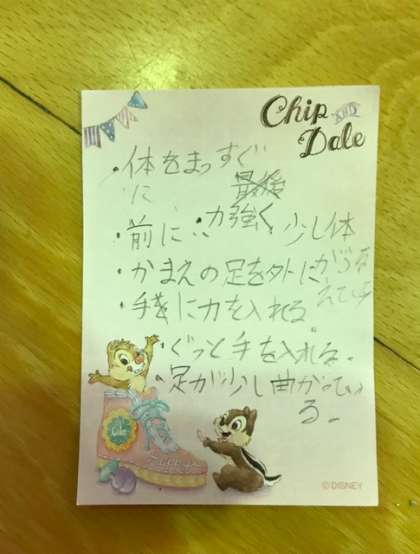 Chip AND
Dale
・体をまっすぐ
に
・前に ・力強く 少し体
・かまえの足を外に
・手に力を入れる
・ぐっと手を入れる。
・足が少し曲がってい
る。
© DISNEY